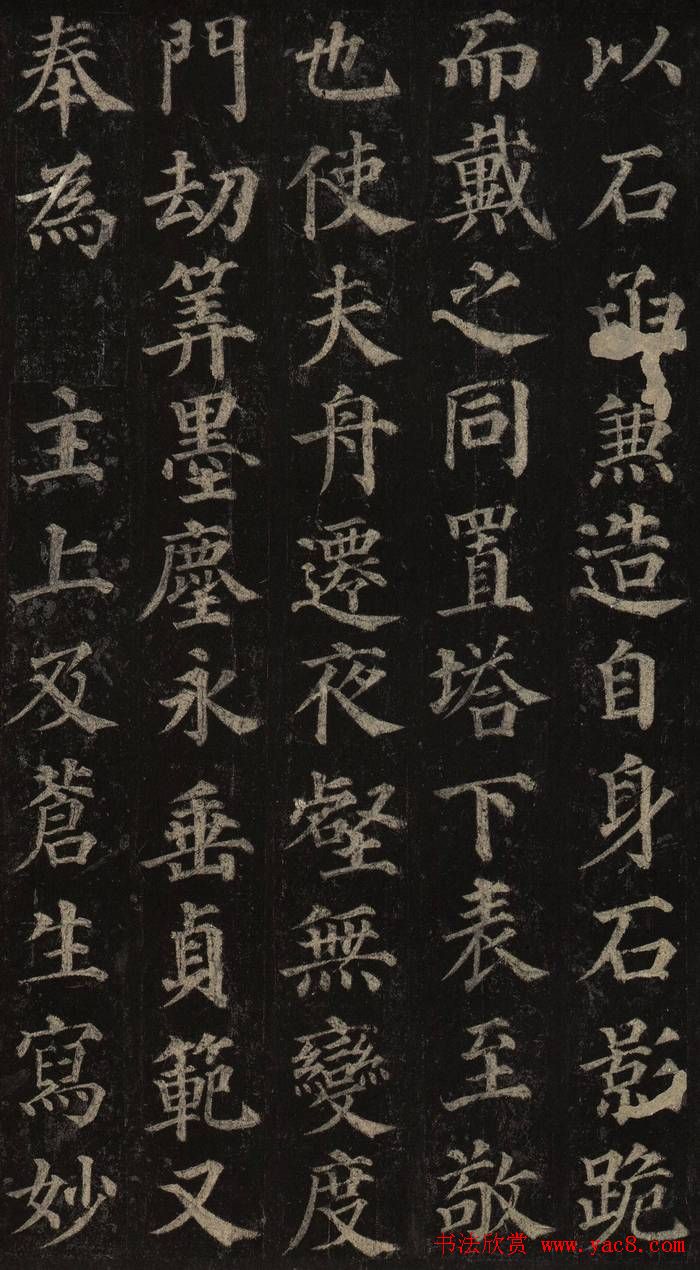 以石函兼造自身石影跪
而戴之同置塔下表至敬
也使夫舟遷夜壑無變度
門劫筭墨塵永垂貞範又
奉為 主上及蒼生寫妙
书法欣赏 www.yac8.com